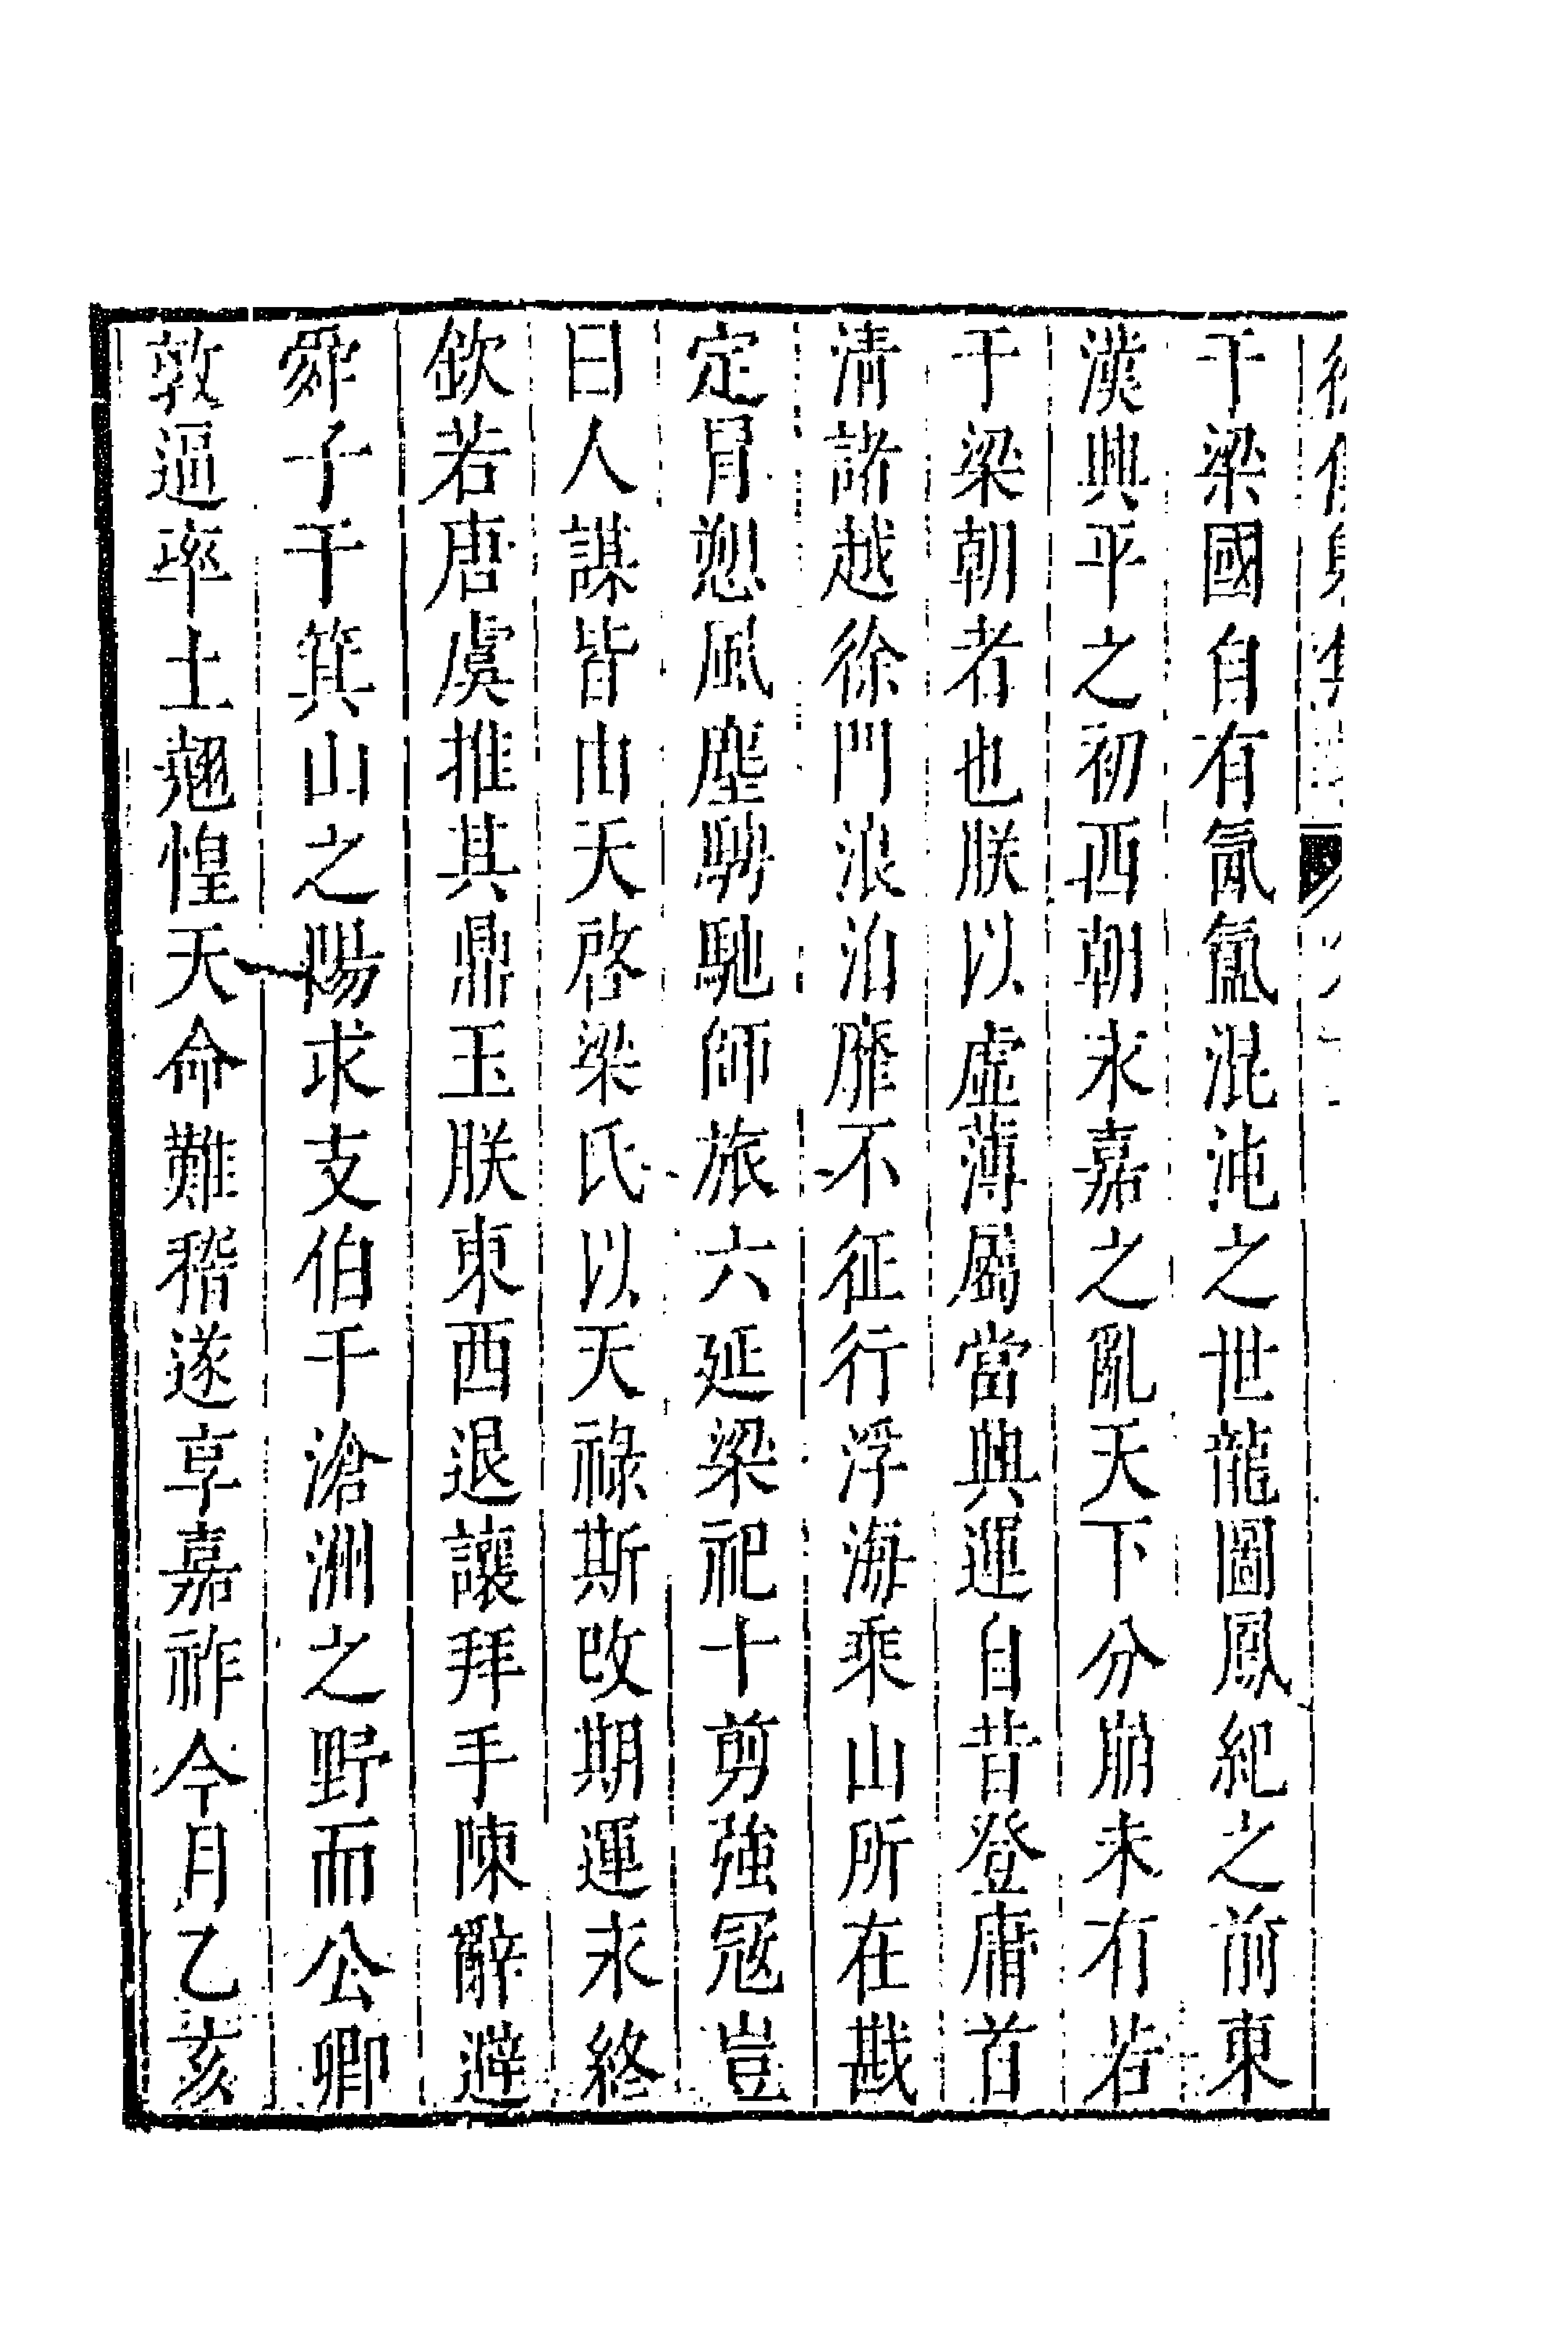 于梁國自有氤氲混沌之世龍圖鳳紀之前東
漢興平之初西朝永嘉之亂天下分崩未有若
于梁朝者也朕以虛薄屬當興運自昔登庸首
清諸越徐門浪泊靡不征行浮海乘山所在戡
定冐愬風塵騁馳師旅六延梁祀十剪強冦豈
曰人謀皆由天啓梁氏以天祿斯改期運永終
欽若唐虞推其鼎玉朕東西退讓拜手陳辭避
舜子于箕山之陽求支伯于滄洲之野而公卿
敦逼率土翹惶天命難稽遂享嘉祚今月乙亥